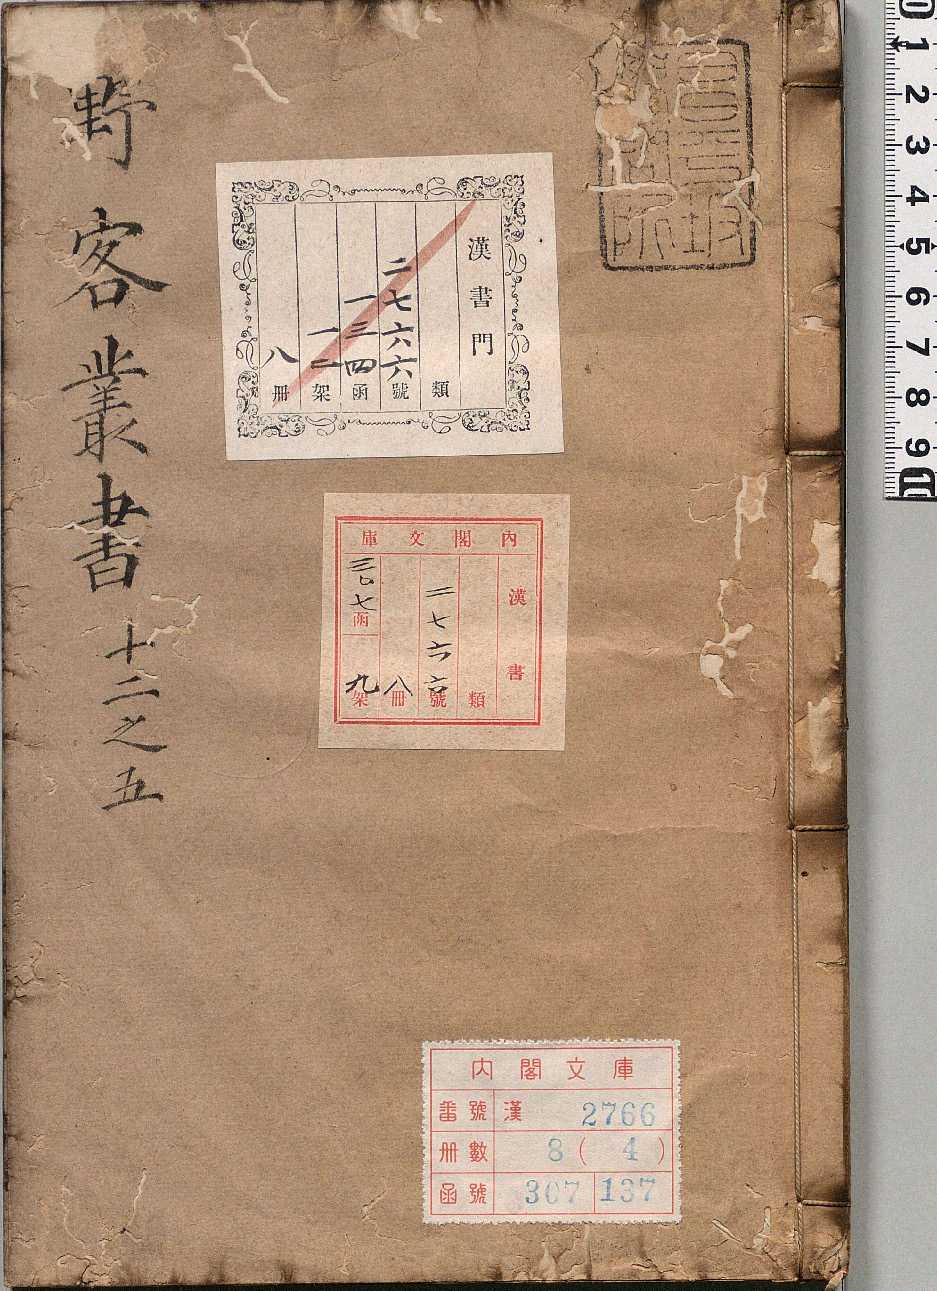 昌平坂
野客叢書 十二之五
漢書門
類
二七六六號
一三四函
一二架
八冊
內閣文庫
漢書
類
二七六六號
八冊
三〇七函
九架
內閣文庫
番號 漢 2766
冊數 8 ( 4 )
函號 307 137
0 1 2 3 4 5 6 7 8 9 10